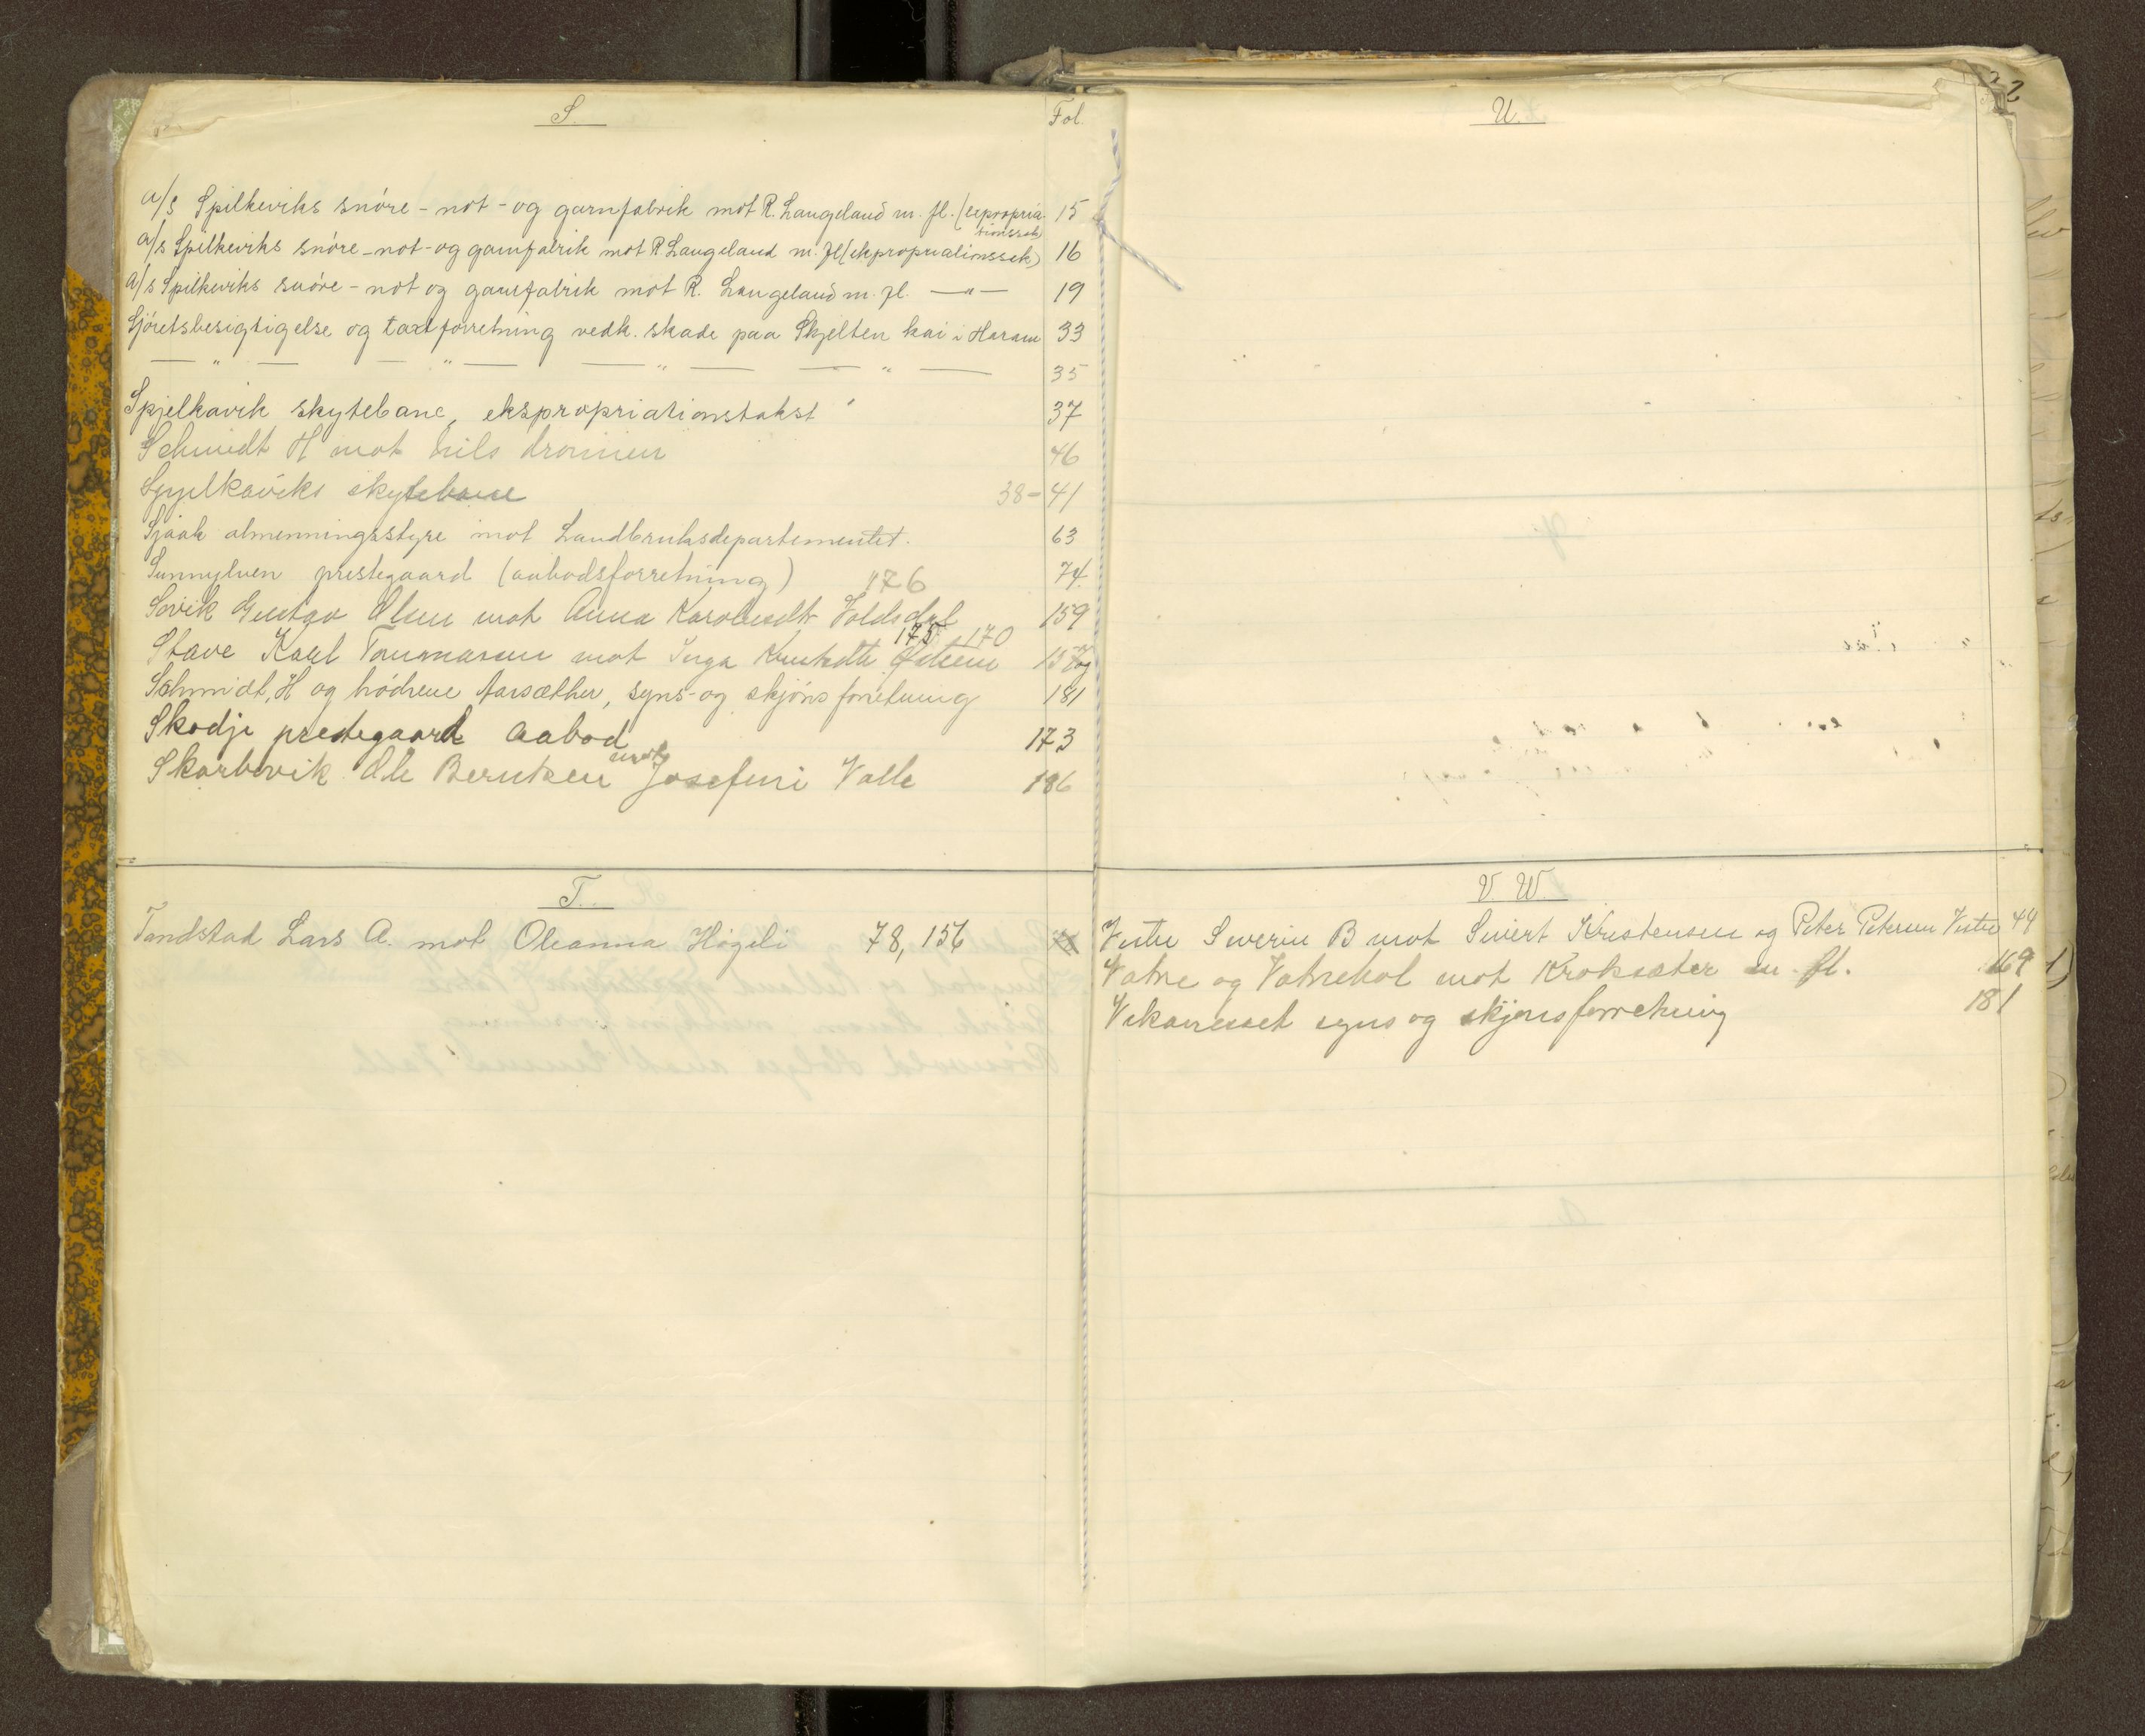 S.
Fol.
a/s Spilkeviks snóre-not-og garnfabrik mot R. Langeland m. fl. (expropria- 15
tionssak)
a/s Spilkeviks snóre-not-og garnfabrik mot R Langeland m. fl (ekspropriationssak) 16
a/s Spilkeviks snóre-not og garnfabrik mot R. Langeland m. fl. —"— 19
Sjóretsbesigtigelse og taxtforretning vedk. skade paa Skjelten kai i Haram 33
—"— —"— —"— —"— 35
Spjelkavik skytebane, ekspropriationstakst 37
Schmidt H mot Nils Dronnen 46
Spjelkaviks skytebane 38-41
Sjaak almenningsstyre mot Landbruksdepartementet. 63
Sunnylven prestegaard (aabodsforretning) 176 74
Søvik Gustav Olsen mot Anna Karolusdtr Voldsdal 159
175 170
Stave Karl Tommasen mot Inga Knutsdtr 157 og
Schmidt, H og brødrene Aarsæther, syns-og skjónsforretning 181
Skodje prestegaard aabod 173
Skarbøvik Ole Berntsen mot Josefine Valle 186
T.
Tandstad Lars A. mot Oleanna Høgeli 78, 156
U.
2
V W.
Vestre Severin B mot Sivert Kristensen og Peter Petersen Vestre 44
Vatne og Vatnehol mot Kroksæter m. fl. 169
Vikanesset syns og skjønsforretning 181